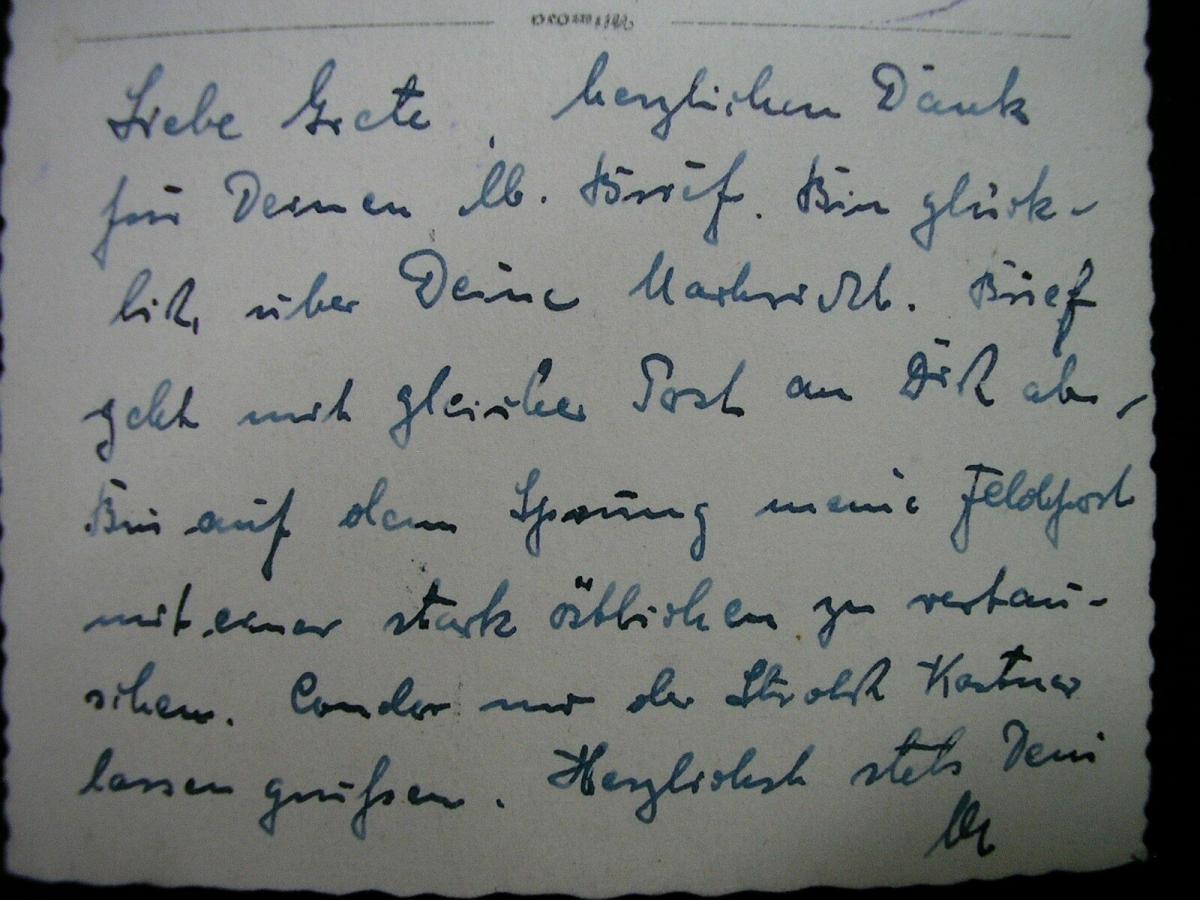 Liebe Grete, herzlichen Dank
für Deinen lb. Brief. Bin glück-
lich über Deine Nachricht. Brief
geht mit gleicher Post an Dich ab,
Bin auf dem Sprung meine Feldpost
mit einer stark östlichen zu vertau-
schen. Condor und der Kastner
lassen grüßen. Herzlichst stets Dein